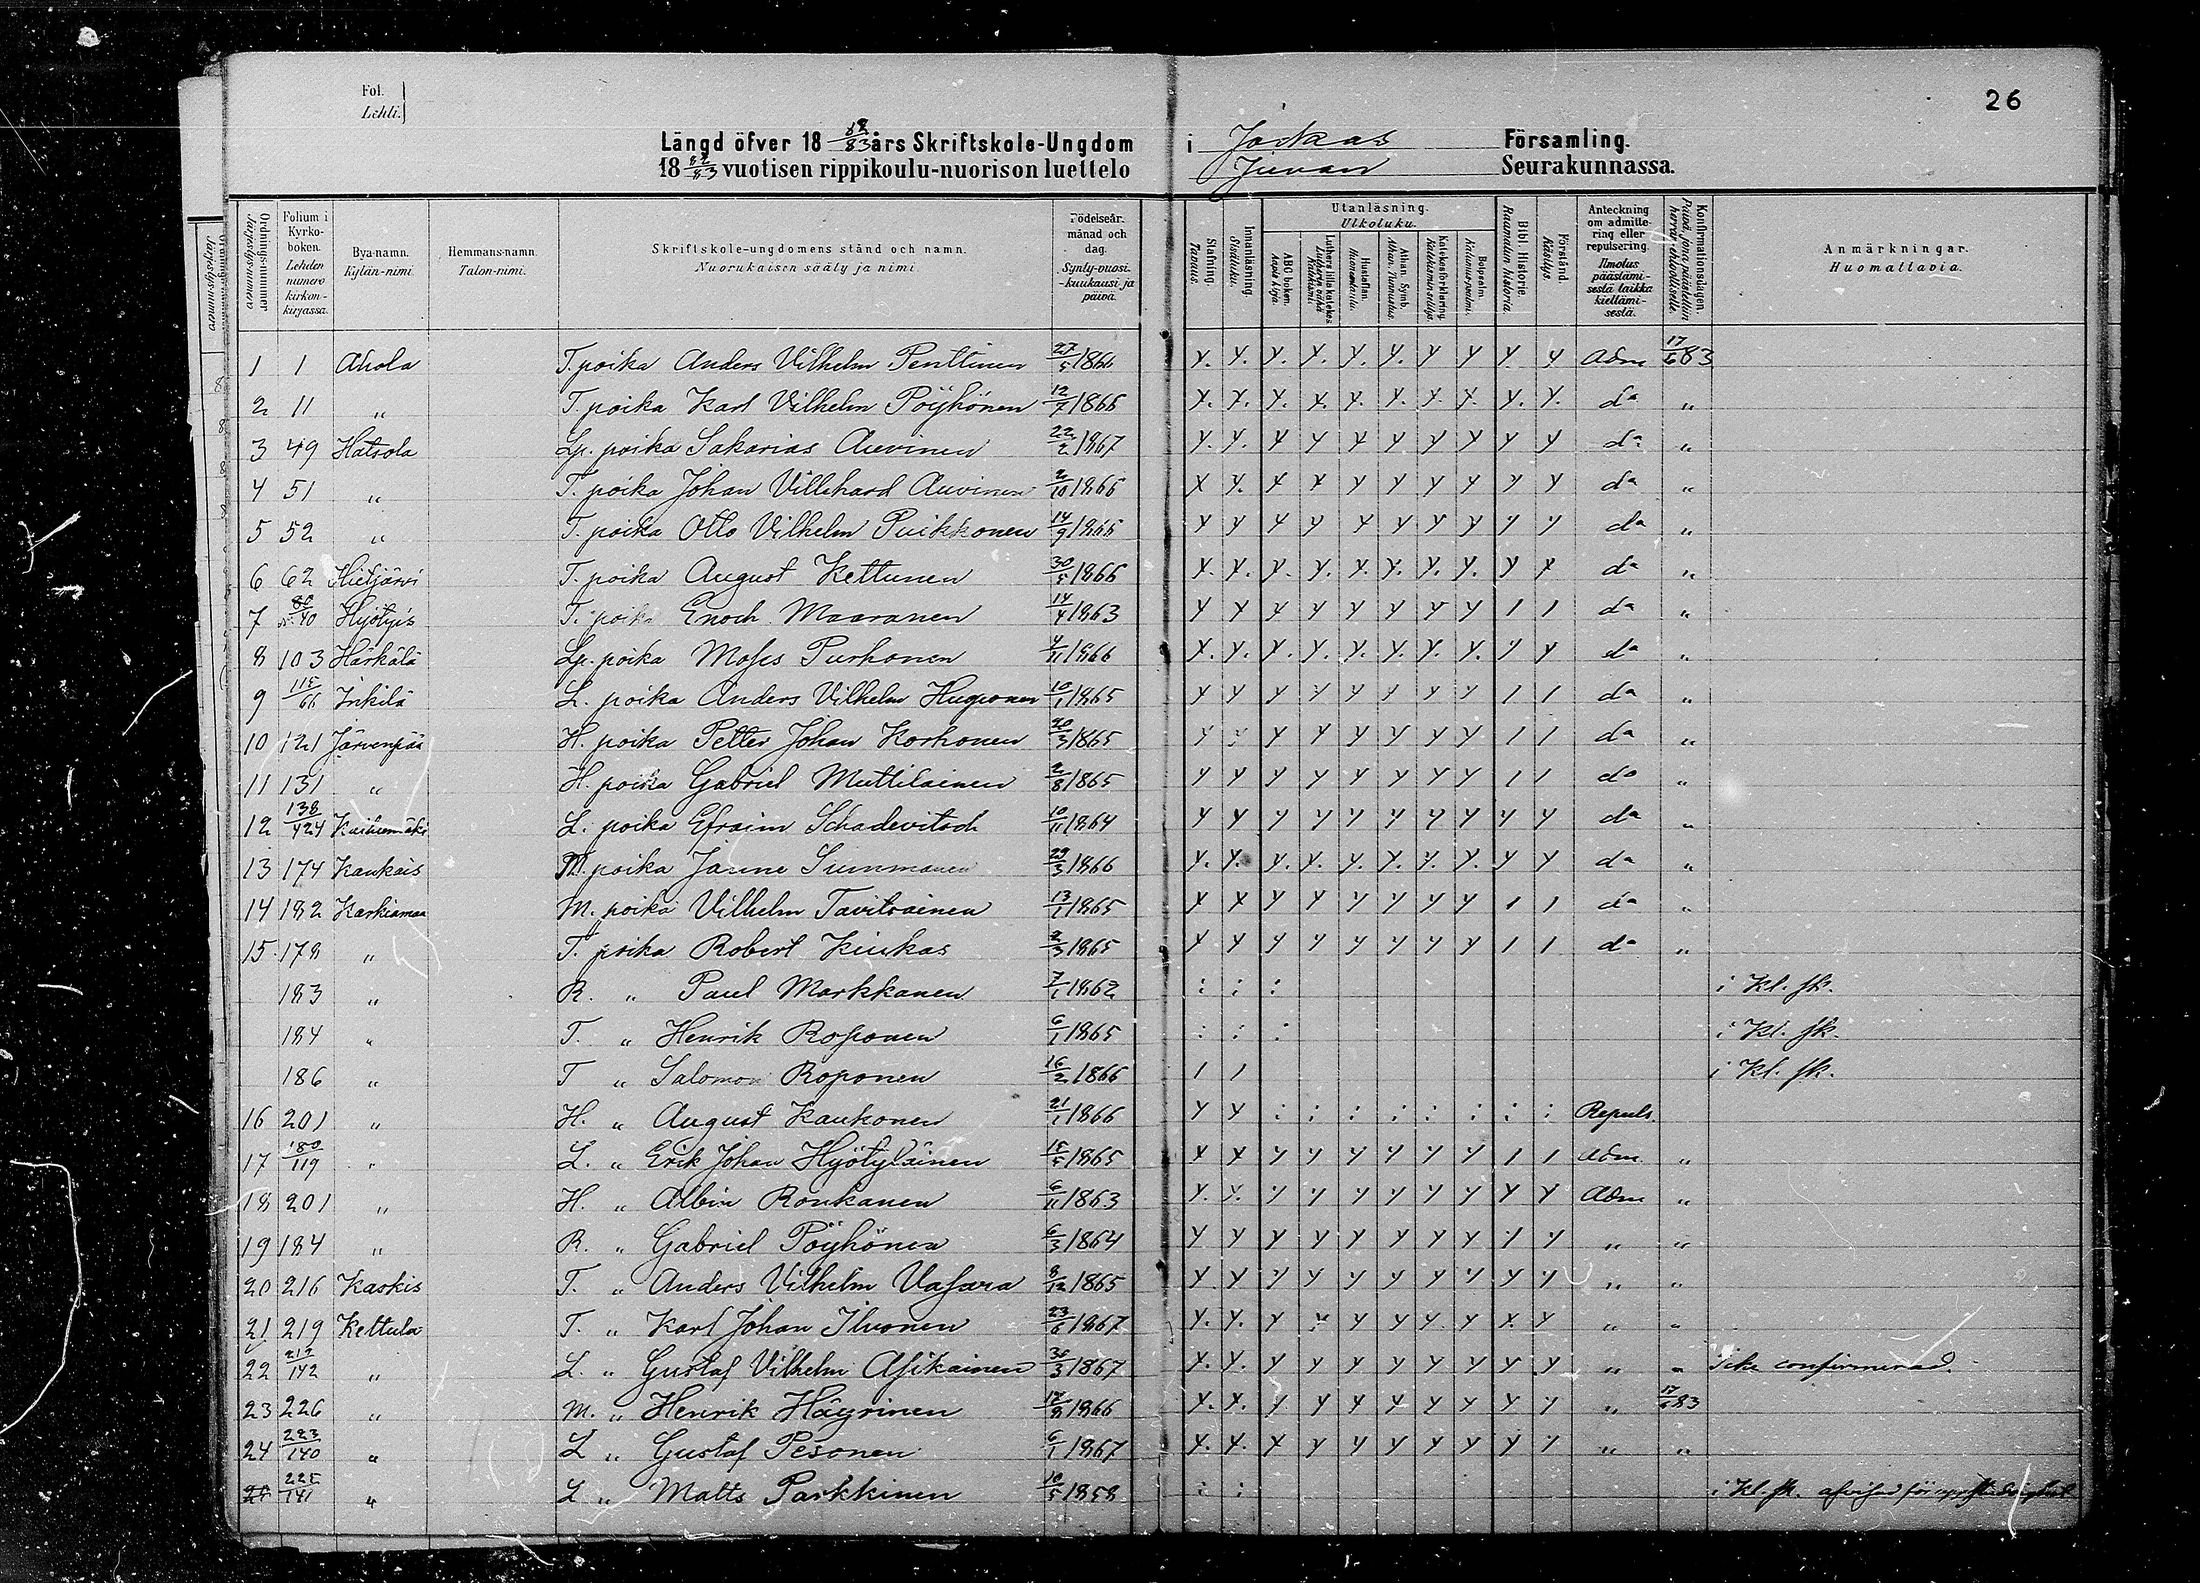 26
Fol.
Lehti.
Längd öfver 18 82/83 års Skriftskole-Ungdom i Jockas Församling.
18 82/83 vuotisen rippikoulu-nuorison luettelo Juvan Seurakunnassa.
Ordningsnummer. Järjestys-numero Folium i Kyrko-boken. Lehden numero kirkon-kirjassa. Bya-namn. Kylän-nimi Hemmans-namn. Talon-nimi. Skriftskole-ungdomens stånd och namn. Nuorukaisen sääty ja nimi Födelseår. månad och dag. Synty-vuosi. -kuukausi ja päivä. Stafning. Tavaus. Innanläsning. Sisäluku. Utanläsning. Ulkoluku. ABC boken. Aapis kirja. Luthers lilla katekes. Lutherin vähä Katekismi. Hustaflan. Huoneentaulu. Athan. Symb. Athan. Tunnustus. Katekesförklaring. Katekismin selitys. Botpsalm. Katumus-psalmi. Bibl. Historie. Raamatun historia. Förstånd. Käsitys. Anteckning om admitte-ring eller repulsering. Ilmotus päästämi-sestä taikka kieltämi-sestä. Konfirmationsdagen. Päivä, jona päästettiin herran ehtoolliselle. Anmärkningar. Huomattavia.
1 1 Ahola T. poika Anders Vilhelm Penttinen 27/5 1866 y. y. y. y. y. y. y y y. y Adm 17/6 83
2 11 " T. poika Karl Vilhelm Pöyhönen 12/7 1866 y. y. y. y. y. y. y. y. y. y. do "
3 49 Hatsola Lp. poika Sakarias Auvinen 22/2 1867 y. y. y y y y y y y y do "
4 51 " T. poika Johan Villehard Auvinen 2/10 1866 y y. y y y y y y y y do "
5 52 " T. poika Otto Vilhelm Puikkonen 14/9 1866 y y y y y y y y y y do "
6 62 Hietjärvi T. poika August Kettunen 30/5 1866 y. y. y. y. y. y. y. y. y y do "
7 40 Hyötyis T. poika Enoch Maaranen 14/4 1863 y y y y y y y y 1 1 do "
8 103 Härkälä Lp. poika Moses Purhonen 4/11 1866 y. y. y. y. y. y. y. y. y y do "
9 115/66 Inkilä L. poika Anders Vilhelm Hupponen 10/1 1865 y y y y y y y y 1 1 do "
10 121 Järvenpää H. poika Petter Johan Korhonen 20/3 1865 y y y y y y y y 1 1 do "
11 131 " H. poika Gabriel Muttilainen 2/8 1865 y y y y y y y y 1 1 do "
12 138/424 Kaihunmäki L. poika Efraim Schadevitsch 10/11 1864 y y y y y y y y y y do "
13 174 Kaukais M. poika Janne Summanen 29/3 1866 y. y. y. y. y. y. y. y. y y do "
14 182 Karkiamaa M. poika Vilhelm Tavitsainen 13/1 1865 y y y y y y y y 1 1 do "
15. 178 " T. poika Robert Kiukas 2/3 1865 y y y y y y y y 1 1 do "
183 " R. " Paul Markkanen 7/1 1862 : : : i Kl. sk.
184 " T. " Henrik Roponen 6/1 1865 : : : i Kl. sk.
186 " T " Salomon Roponen 16/2 1866 1 1 i Kl. sk.
16 201 " H. " August Kaukonen 21/1 1866 y y : : : : : : : : Repuls.
17 180/119 " L. " Erik Johan Hyötyläinen 15/5 1865 y y y y y y y y 1 1 Adm. "
18 201 " H. " Albin Ronkanen 6/11 1863 y. y. y y y y y y y y Adm "
19 184 " R. " Gabriel Pöyhönen 6/3 1864 y y y y y y y y y y " "
20 216 Kaskis T. " Anders Vilhelm Vasara 8/12 1865 y y y y y y y y y y " "
21 219 Kettula T. " Karl Johan Ilvonen 23/6 1867 y. y. y y y y y y y y " "
22 217/142 " L. " Gustaf Vilhelm Asikainen 30/3 1867 y. y. y y y y y y y y " " icke confirmerad.
23 226 " M. " Henrik Häyrinen 17/8 1866 y. y. y y y y y y y y " 17/6 83
24 223/140 " L " Gustaf Pesonen 6/1 1867 y. y. y y y y y y y y " "
225/141 " L " Matts Parkkinen 10/5 1858 : : i Kl. sk. afvisad för